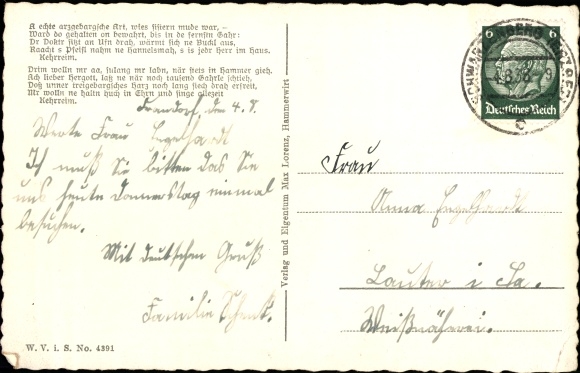 A echte arzgebargsche Art, wies hifern mude war, –
Ward do gehalten on bewahrt, bis in de fernstn Gahr:
Dr Doktr sitzt an Ufn drah, wärmt sich ne Buckl aus,
Raacht s Pfeifl nahm ne Hannelsmah, s is jedr Herr im Haus.
Kehrreim.
Drim wolln mr aa, sulang mr labn, när stets in Hammer gieh.
Ach lieber Hergott, laß ne när noch tausend Gahrle schtieh,
Doß unner treigebargisches Harz noch lang sich drah erfreit.
Mr wolln ne haltn huch in Ehrn und singe allezeit
Kehrreim.
den 4. 8.
Werte Frau Engelhardt
Ich muß Sie bitten das Sie
uns heute Donnerstag einmal
besuchen.
Mit deutschen Gruß
Familie Schenk.
W. V. i. S. No. 4391
Verlag und Eigentum Max Lorenz, Hammerwirt
6 6
Deutsches Reich
SCHWARZENBERG (ERZGEB)
4.8.38. 9
Frau
Anna Engelhardt
Lauter i Sa.
Weißnäherei.